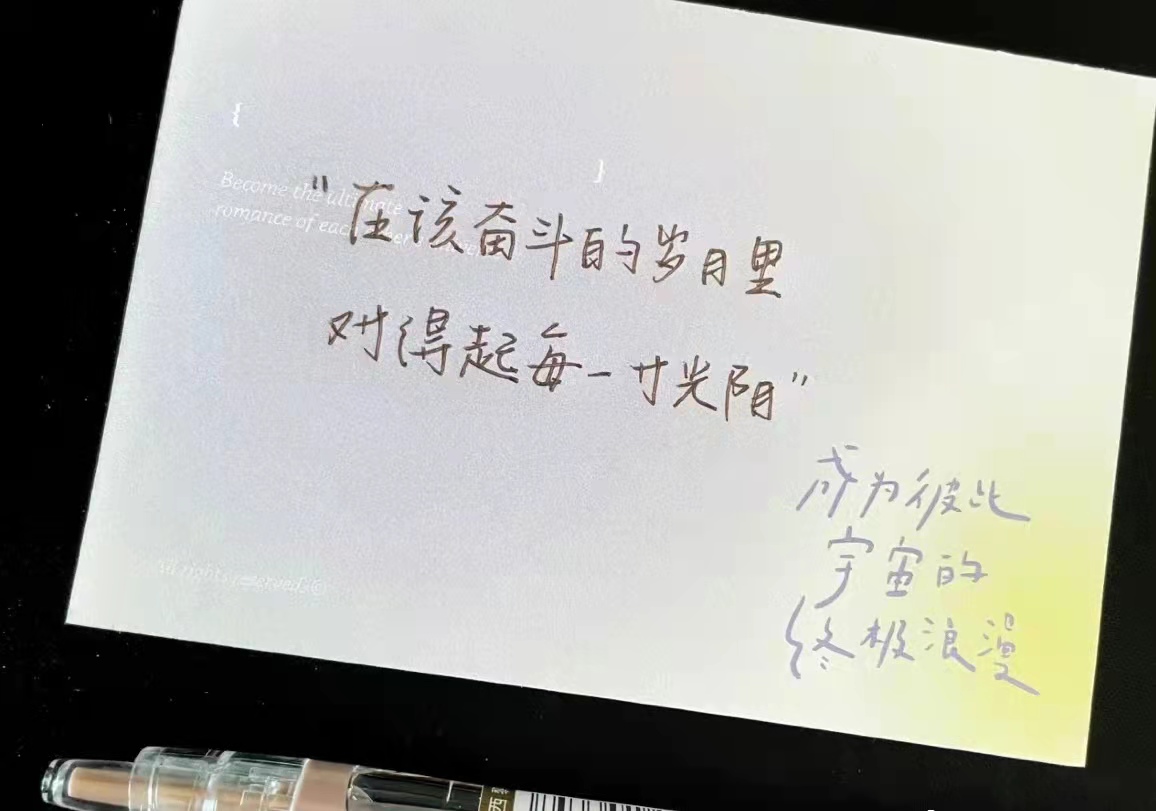 {
}
Become the ultimate
romance of each
“在该奋斗的岁月里
对得起每一寸光阳”
成为彼此
宇宙的
终极浪漫
All rights reserveds©
西